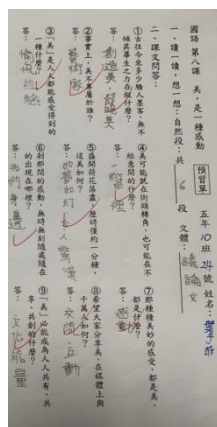 國語第八課 美，是一種感動
預習單
五年10班24號 姓名：
一、讀一讀，想一想：自然段：共 6 段 文體：議論文
二、課文問答：
①古往今來多少騷人墨客，無不傾其畢生之力在做什麼？
答：創造美、記錄美
②事實上，美不專屬於誰？
答：藝術家
③「美」是人人都能感受得到的一種什麼？
答：
④美可能就在街頭轉角，也可能在不經意間的什麼？
答：一瞥裡
⑤盛開荷花落盡，歷時僅約一分鐘，這美如何？
答：
⑥剎那間的感動，無時無刻隨處隨在的出現在哪裡？
答：
⑦那種種美妙的感受，都是美，都是什麼？
答：感動
⑧希望大家分享美，在媒體上與千萬人如何？
答：交流、互動
⑨「美」必能成為人人共有、共享、共創的什麼？
答：文化能量